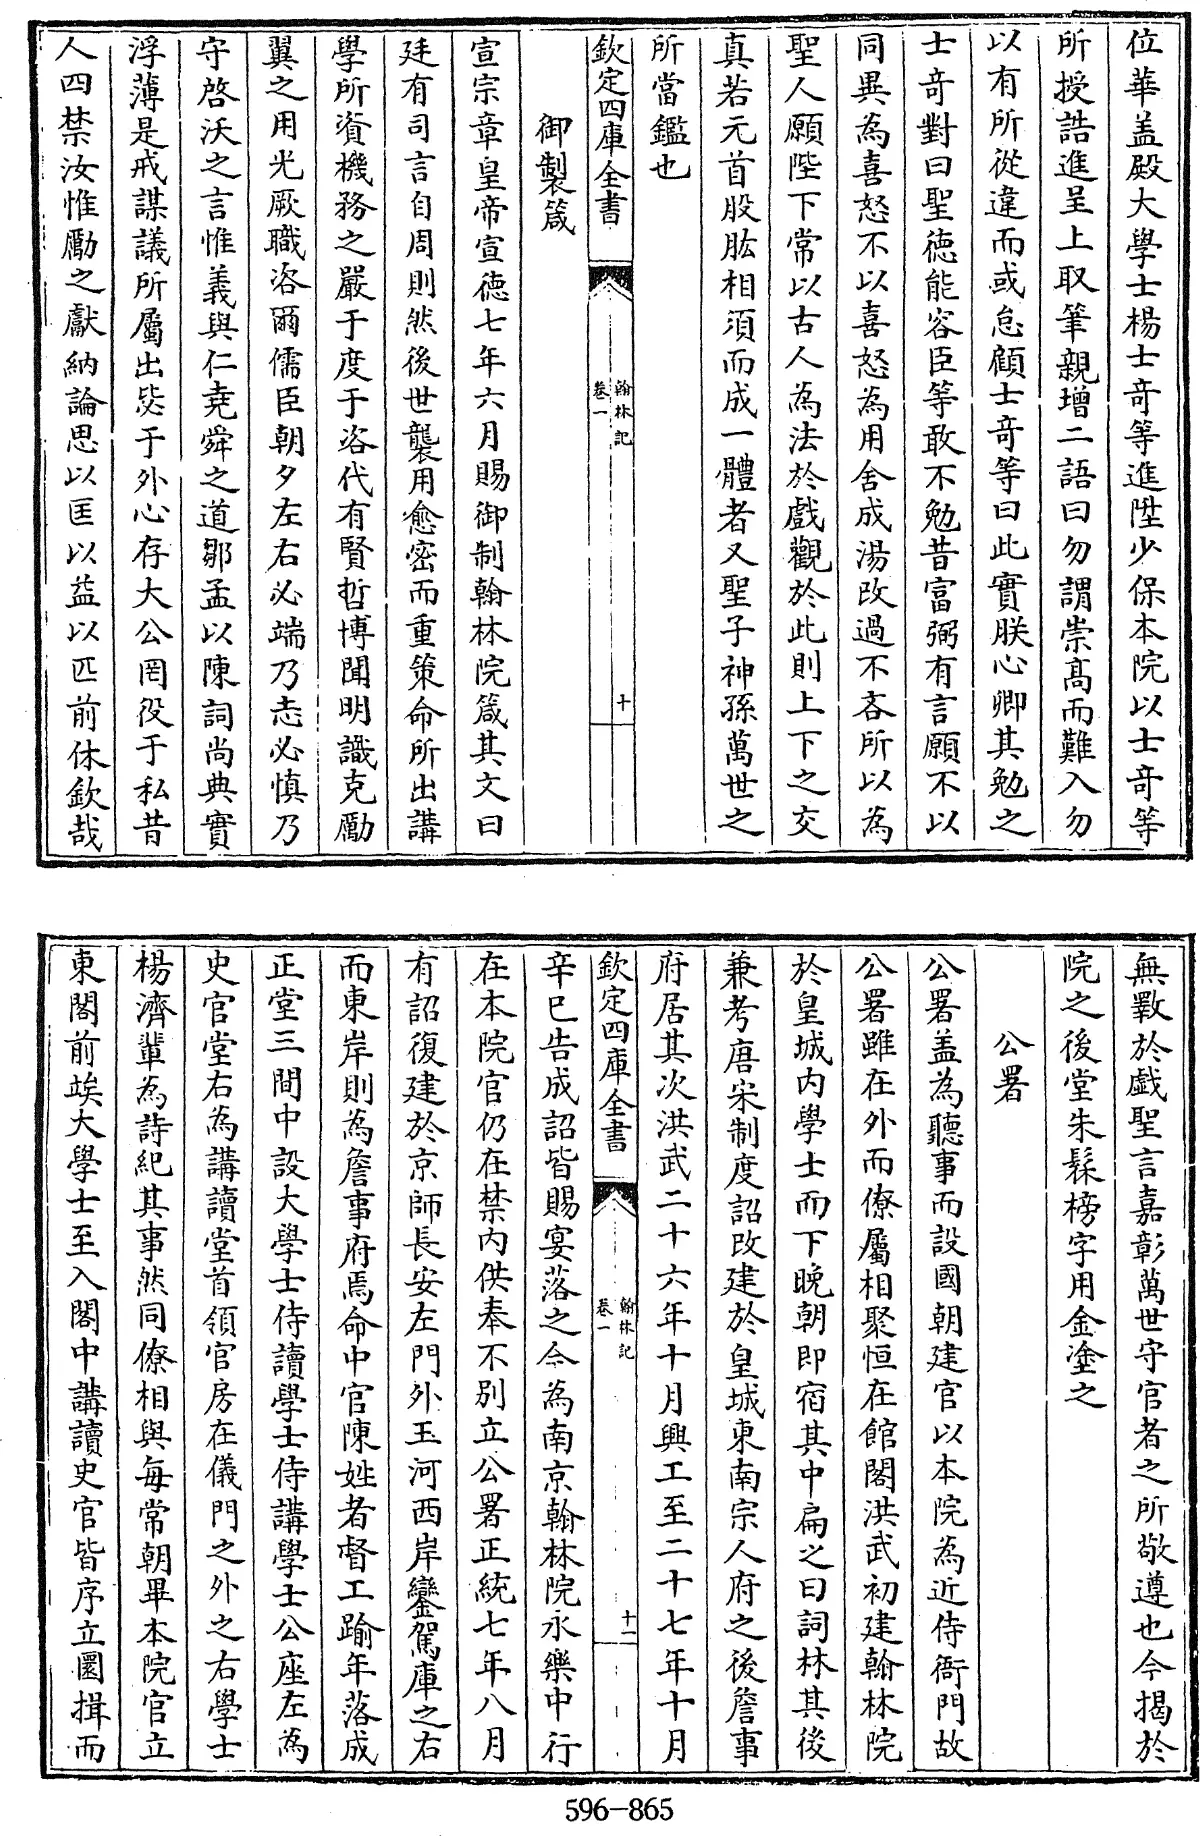 位華盖殿大學士楊士奇等進陞少保本院以士奇等
所授誥進呈上取筆親增二語曰勿謂崇髙而難入勿
以有所從違而或怠顧士奇等曰此實朕心卿其勉之
士奇對曰聖徳能容臣等敢不勉昔富弼有言願不以
同異為喜怒不以喜怒為用舍成湯改過不吝所以為
聖人願陛下常以古人為法於戲觀於此則上下之交
真若元首股肱相須而成一體者又聖子神孫萬世之
所當鑑也
欽定四庫全書
翰林記
卷一
十
御製箴
宣宗章皇帝宣徳七年六月賜御制翰林院箴其文曰
廷有司言自周則然後世襲用愈密而重策命所出講
學所資機務之嚴于度于咨代有賢哲博聞明識克勵
翼之用光厥職咨爾儒臣朝夕左右必端乃志必慎乃
守啓沃之言惟義與仁堯舜之道鄒孟以陳詞尚典實
浮薄是戒謀議所屬出毖于外心存大公罔役于私昔
人四禁汝惟勵之獻納論思以匡以益以匹前休欽哉
無斁於戯聖言嘉彰萬世守官者之所敬遵也今揭於
院之後堂朱髹榜字用金塗之
公署
公署盖為聽事而設國朝建官以本院為近侍衙門故
公署雖在外而僚屬相聚恒在館閣洪武初建翰林院
於皇城内學士而下晚朝即宿其中扁之曰詞林其後
兼考唐宋制度詔改建於皇城東南宗人府之後詹事
府居其次洪武二十六年十月興工至二十七年十月
欽定四庫全書
翰林記
卷一
十一
辛巳告成詔皆賜宴落之今為南京翰林院永樂中行
在本院官仍在禁内供奉不别立公署正統七年八月
有詔復建於京師長安左門外玉河西岸鑾駕庫之右
而東岸則為詹事府焉命中官陳姓者督工踰年落成
正堂三間中設大學士侍讀學士侍講學士公座左為
史官堂右為講讀堂首領官房在儀門之外之右學士
楊濟輩為詩紀其事然同僚相與每常朝畢本院官立
東閣前竢大學士至入閣中講讀史官皆序立圜揖而
596-865